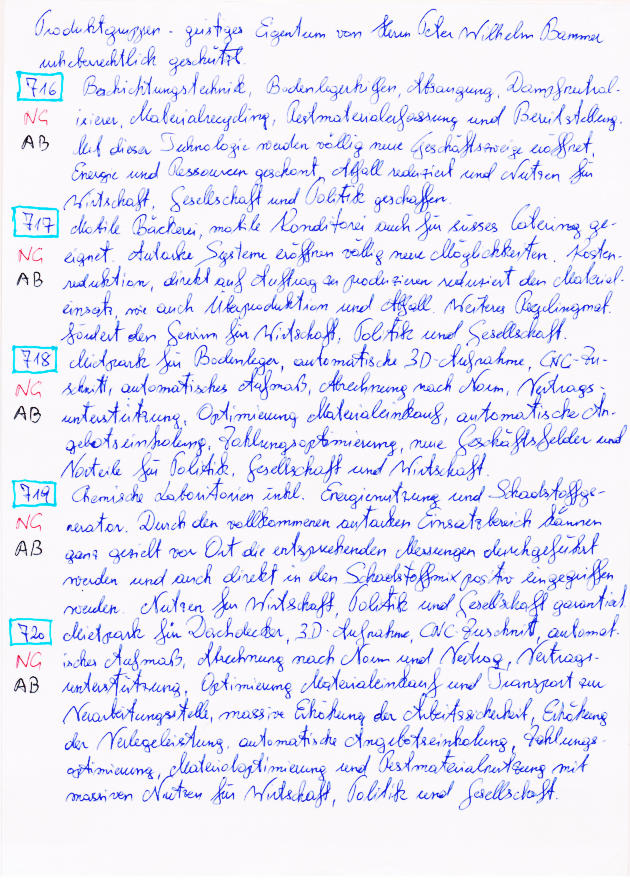 Produktgruppen - geistiges Eigentum von Herrn Peter Wilhelm Bammer
urheberrechtlich geschützt.
716 Beschichtungstechnik, Bodenlegerhilfen, Absaugung, Dampfneutral-
NG isierer, Materialrecycling, Restmaterialerfassung und Bereitstellung.
AB Mit dieser Technologie werden völlig neue Geschäftszweige eröffnet,
Energie und Ressourcen geschont, Abfall reduziert und Nutzen für
Wirtschaft, Gesellschaft und Politik geschaffen.
717 Mobile Bäckerei, mobile Konditorei auch für süsses Catering ge-
NG eignet. Autarke Systeme eröffnen völlig neue Möglichkeiten. Kosten-
AB reduktion, direkt auf Auftrag zu produzieren reduziert den Material-
einsatz, wie auch Überproduktion und Abfall. Weiteres
fördert den Gewinn für Wirtschaft, Politik und Gesellschaft.
718 Mietpark für Bodenleger, automatische 3D-Aufnahme, CNC-Zu-
NG schnitt, automatisches Aufmaß, Abrechnung nach Norm, Vertrags-
AB unterstützung, Optimierung Materialeinkauf, automatische An-
gebotseinholung, Zahlungsoptimierung, neue Geschäftsfelder und
Vorteile für Politik, Gesellschaft und Wirtschaft.
719 Chemische Laboritorien inkl. Energienutzung und Schadstoffge-
NG nerator. Durch den vollkommenen autarken Einsatzbereich können
AB ganz gezielt vor Ort die entsprechenden Messungen durchgeführt
werden und auch direkt in den Schadstoffmix positiv eingegriffen
werden. Nutzen für Wirtschaft, Politik und Gesellschaft garantiert.
720 Mietpark für Dachdecker, 3D-Aufnahme, CNC-Zuschnitt, automat-
NG isches Aufmaß, Abrechnung nach Norm und Vertrag, Vertrags-
AB unterstützung, Optimierung Materialeinkauf und Transport zur
Verarbeitungsstelle, massive Erhöhung der Arbeitssicherheit, Erhöhung
der Verlegeleistung, automatische Angebotseinholung, Zahlungs-
optimierung, Materialoptimierung und Restmaterialnutzung mit
massiven Nutzen für Wirtschaft, Politik und Gesellschaft.